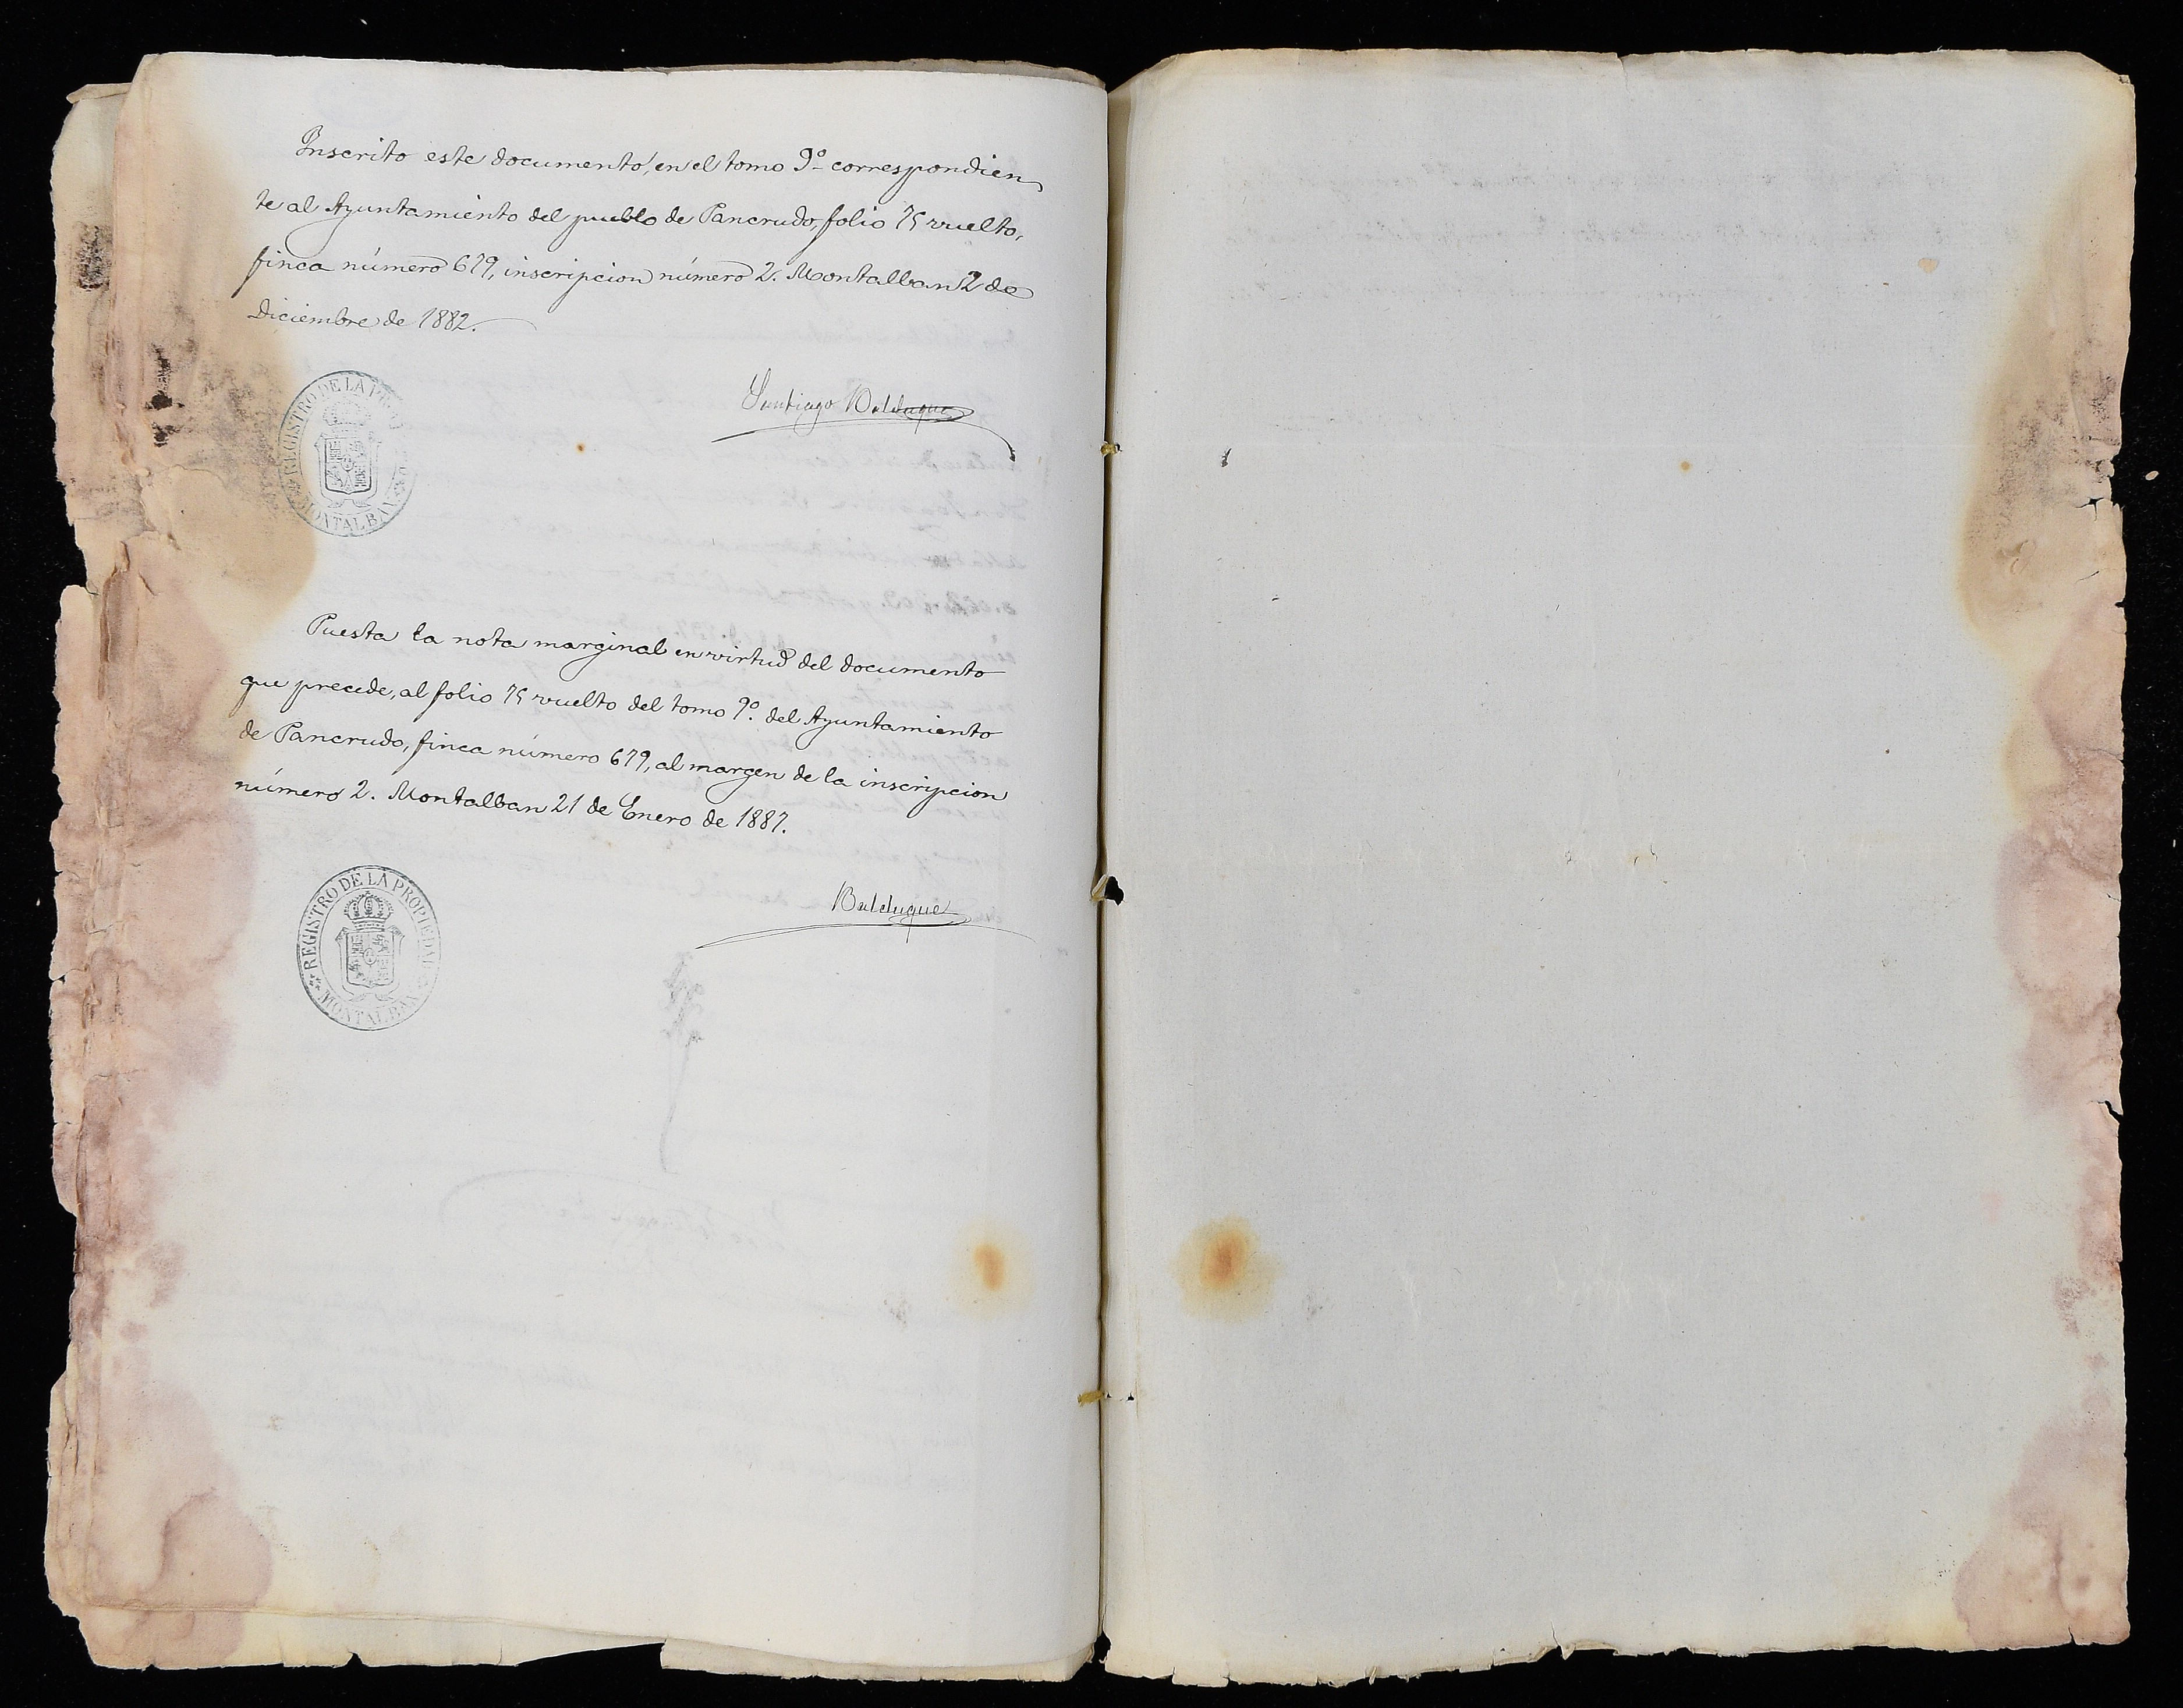 Inscrito este documento, en el tomo 9º correspondien
te al Ayuntamiento del pueblo de Pancrudo, folio 75 vuelto,
finca número 679, inscripcion número 2. Montalban 2 de
Diciembre de 1882.
Santiago Balduque
REGISTRO DE LA PROP
MONTALBAN
Puesta la nota marginal en virtud del documento
que precede, al folio 75 vuelto del tomo 9º. del Ayuntamiento
de Pancrudo, finca número 679, al margen de la inscripcion
número 2. Montalban 21 de Enero de 1887.
Balduque
REGISTRO DE LA PROPIEDAD
MONTALBAN